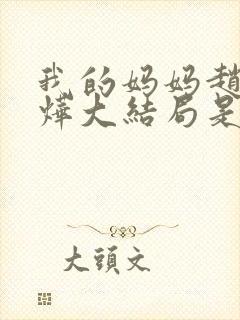 我的妈妈趙
燁大結局是
大頭文